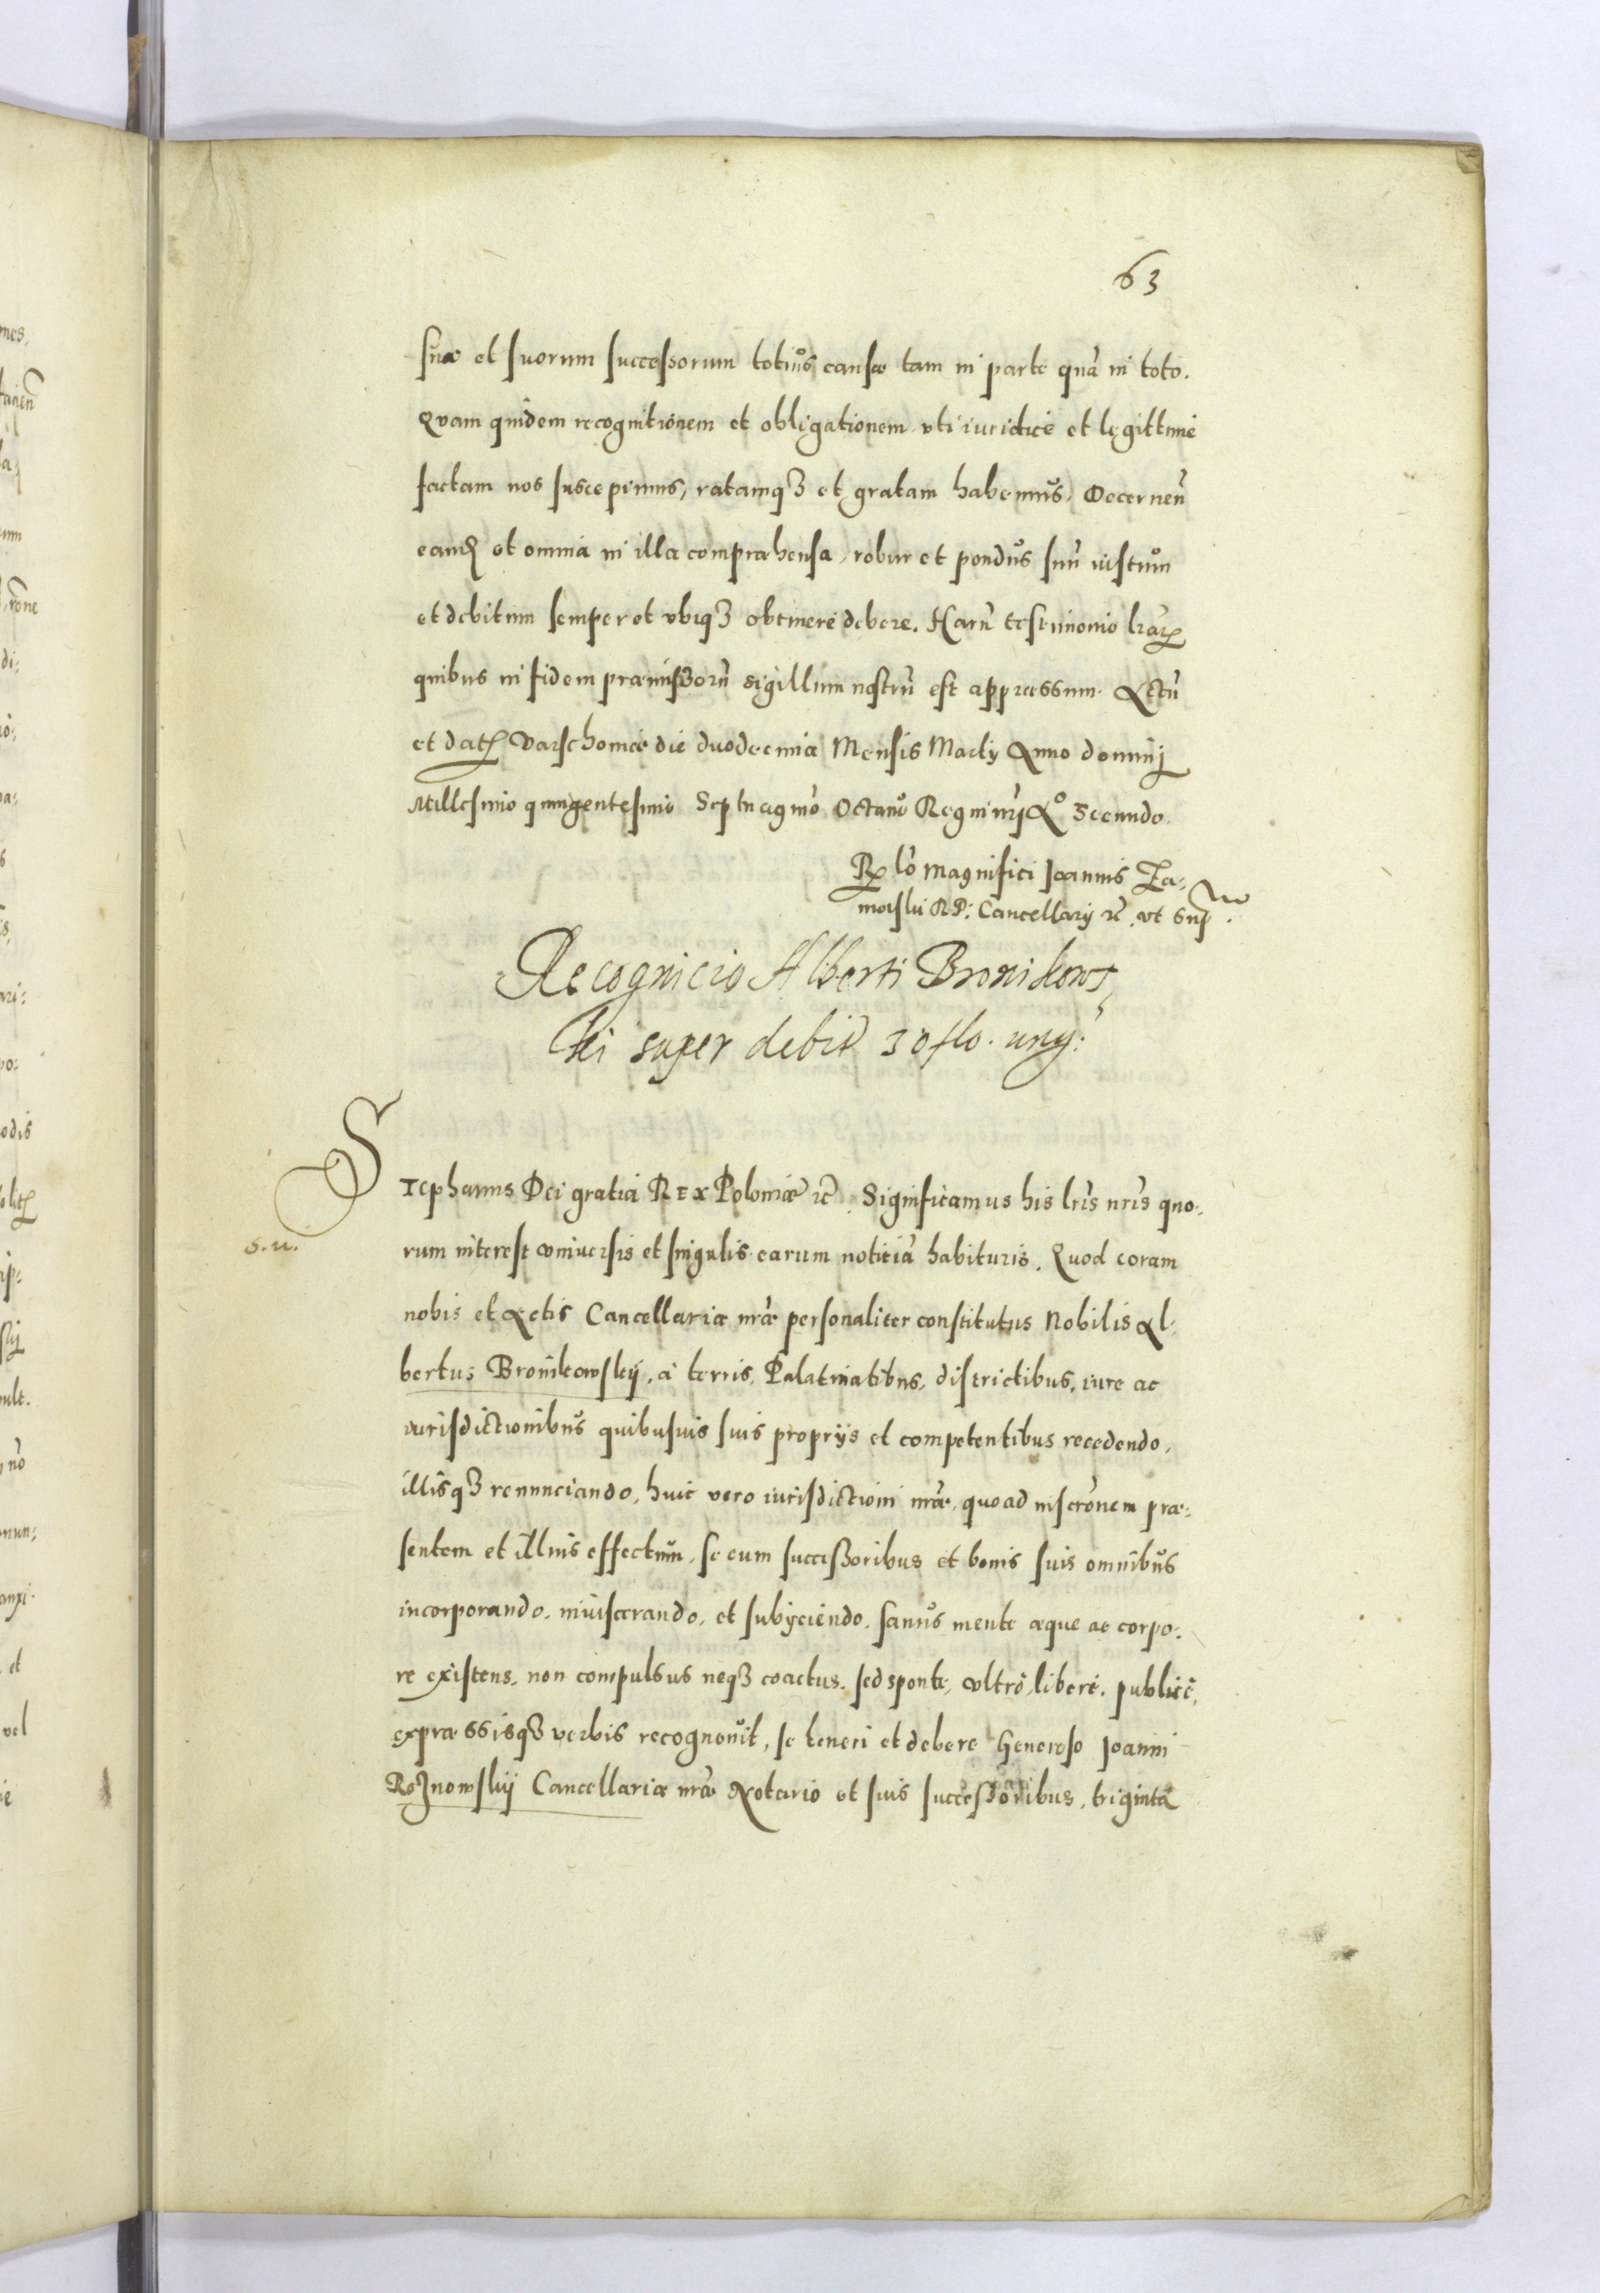 63
suæ et suorum successorum totius causæ tam in parte quā in toto.
Quam quidem recognitionem et obligationem uti iuridicè et legittimè
factam nos suscepimus, ratamqꝫ et gratam habemus, Decernen̄
eandē et omnia in illa compræhensa, robur et pondus suū iustum
et debitum semper et ubiqꝫ obtinere debere. Harū testimonio lrāꝝ
quibus in fidem præmissorū sigillum nostrū est appressum. Actū
et datꝭ Varschoviæ die duodecima Mensis Marcÿ Anno dominj
Millesimo quingentesimo Septuagmō Octavo Regni nrj Aº Secundo.
Rº lō Magnifici Joannis Za-
moislii RP: Cancellarÿ ꝛc̄ ut sup
Recognicio Alberti Bronikows
kii super debit 30 flo. ung:
Stephanus Dei gratia Rex Poloniæ ꝛc̄. Significamus his lrīs nrīs quo-
S. u.
rum interest universis et singulis earum noticiā habituris. Quod coram
nobis et Actis Cancellariæ nrāe personaliter constitutus Nobilis Al-
bertus Bronikowskÿ, à terris, Palatinatibus, districtibus, iure ac
iurisdictionibus quibusuis suis proprÿs et competentibus recedendo,
illisqꝫ renunciando, huic vero iurisdictioni nrāe, quoad inscrōnem præ-
sentem et illius effectum, se cum successoribus et bonis suis omnibus
incorporando, inviscerando, et subÿciendo. Sanus mente æque ac corpo-
re existens, non compulsus neqꝫ coactus, sed sponte, ultrò, liberè, publicè,
expræssisqꝫ verbis recognovit, se teneri et debere Generoso Joanni
Rosnowskÿ Cancellariæ nrāe Notario et suis successoribus, triginta